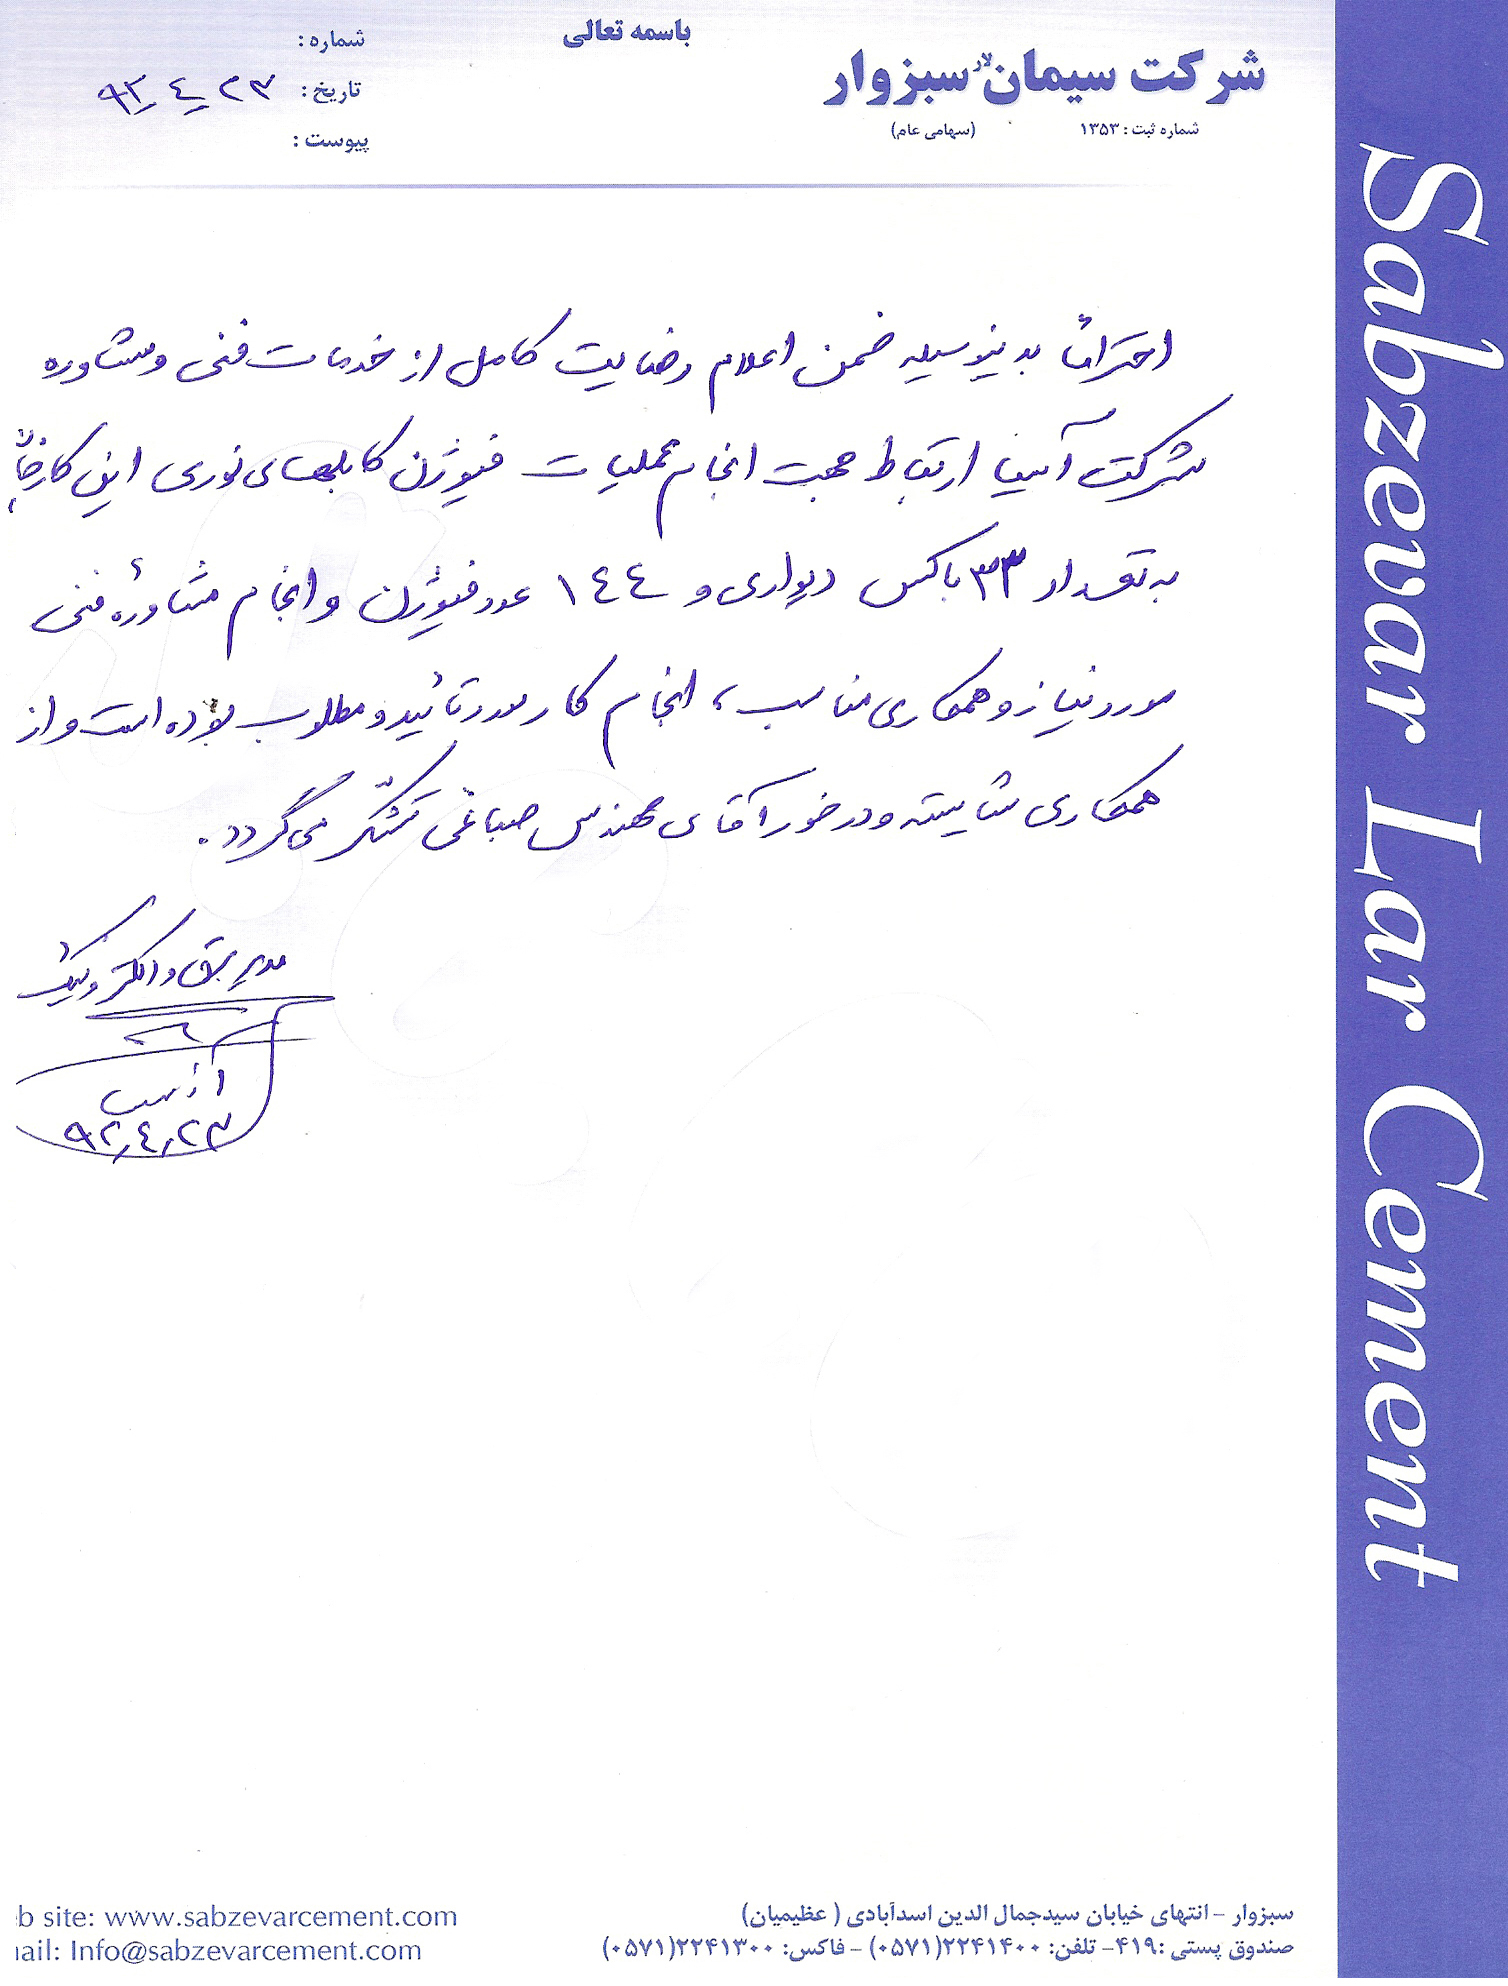 باسمه تعالی
شرکت سیمان لار سبزوار
شماره ثبت : ۱۳۵۳ (سهامی عام)
شماره :
تاریخ : ۹۲-۴-۲۳
پیوست :
احتراماً بدینوسیله ضمن اعلام رضایت کامل از خدمات فنی و مشاوره
شرکت آسیا ارتباط جهت انجام عملیات فیوژن کابلهای نوری این کارخانه
به تعداد ۳۳ باکس دیواری و ۱۴۴ عدد فیوژن و انجام مشاوره فنی
مورد نیاز و همکاری مناسب، انجام کار مورد تائید و مطلوب بوده است و از
همکاری شایسته و درخور آقای مهندس صباغی تشکّر می گردد.
مدیر برق و الکترونیک
۹۲٫۴٫۲۳
Sabzevar Lar Cement
سبزوار - انتهای خیابان سیدجمال الدین اسدآبادی ( عظیمیان)
صندوق پستی :۴۱۹- تلفن: ۲۲۴۱۴۰۰(۰۵۷۱) - فاکس: ۲۲۴۱۳۰۰(۰۵۷۱)
b site: www.sabzevarcement.com
ail: Info@sabzevarcement.com